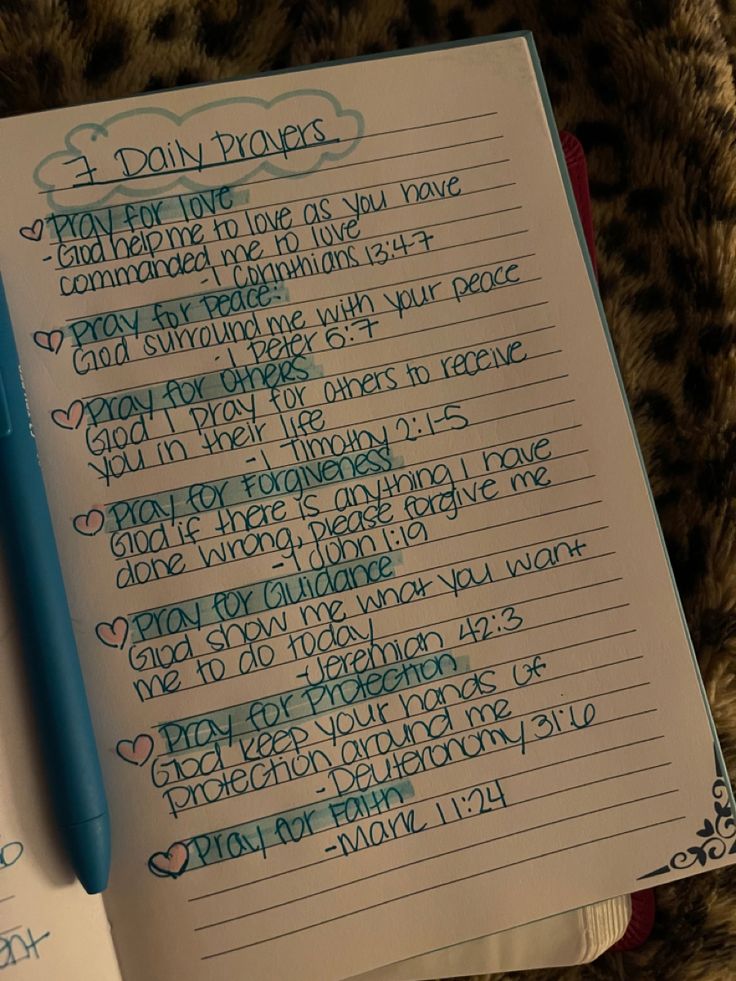 7 Daily Prayers
Pray for love
- God help me to love as you have
commanded me to love
- 1 Corinthians 13:4-7
Pray for Peace:
God surround me with your peace
- 1 Peter 5:7
Pray for others
God I pray for others to receive
you in their life
- 1 Timothy 2:1-5
Pray for Forgiveness
God if there is anything I have
done wrong, please forgive me
- 1 John 1:19
Pray for Guidance
God show me what you want
me to do today
- Jeremiah 42:3
Pray for Protection
God keep your hands of
protection around me
- Deuteronomy 31:6
Pray for Faith
- Mark 11:24